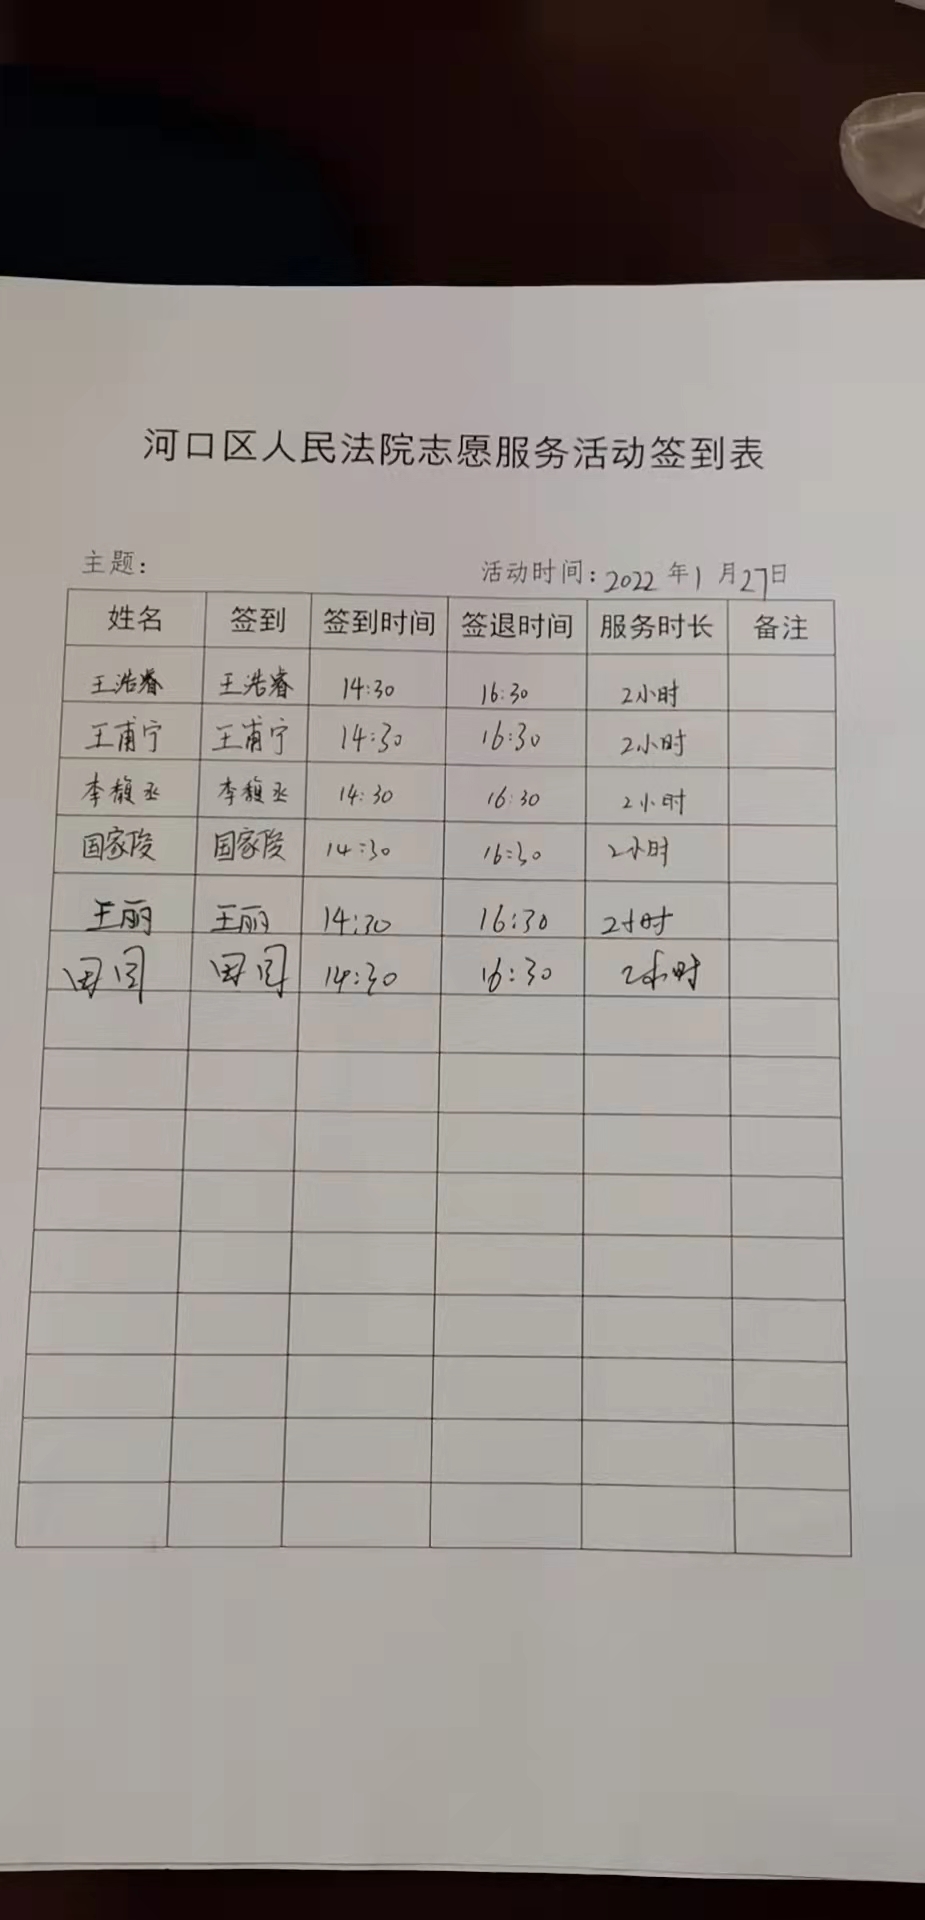 河口区人民法院志愿服务活动签到表
主题： 活动时间：2022年1月27日
姓名 签到 签到时间 签退时间 服务时长 备注
王浩睿 王浩睿 14:30 16:30 2小时
王甫宁 王甫宁 14:30 16:30 2小时
李馥丞 李馥丞 14:30 16:30 2小时
国家陵 国家陵 14:30 16:30 2小时
王丽 王丽 14:30 16:30 2小时
田 田 14:30 16:30 2小时